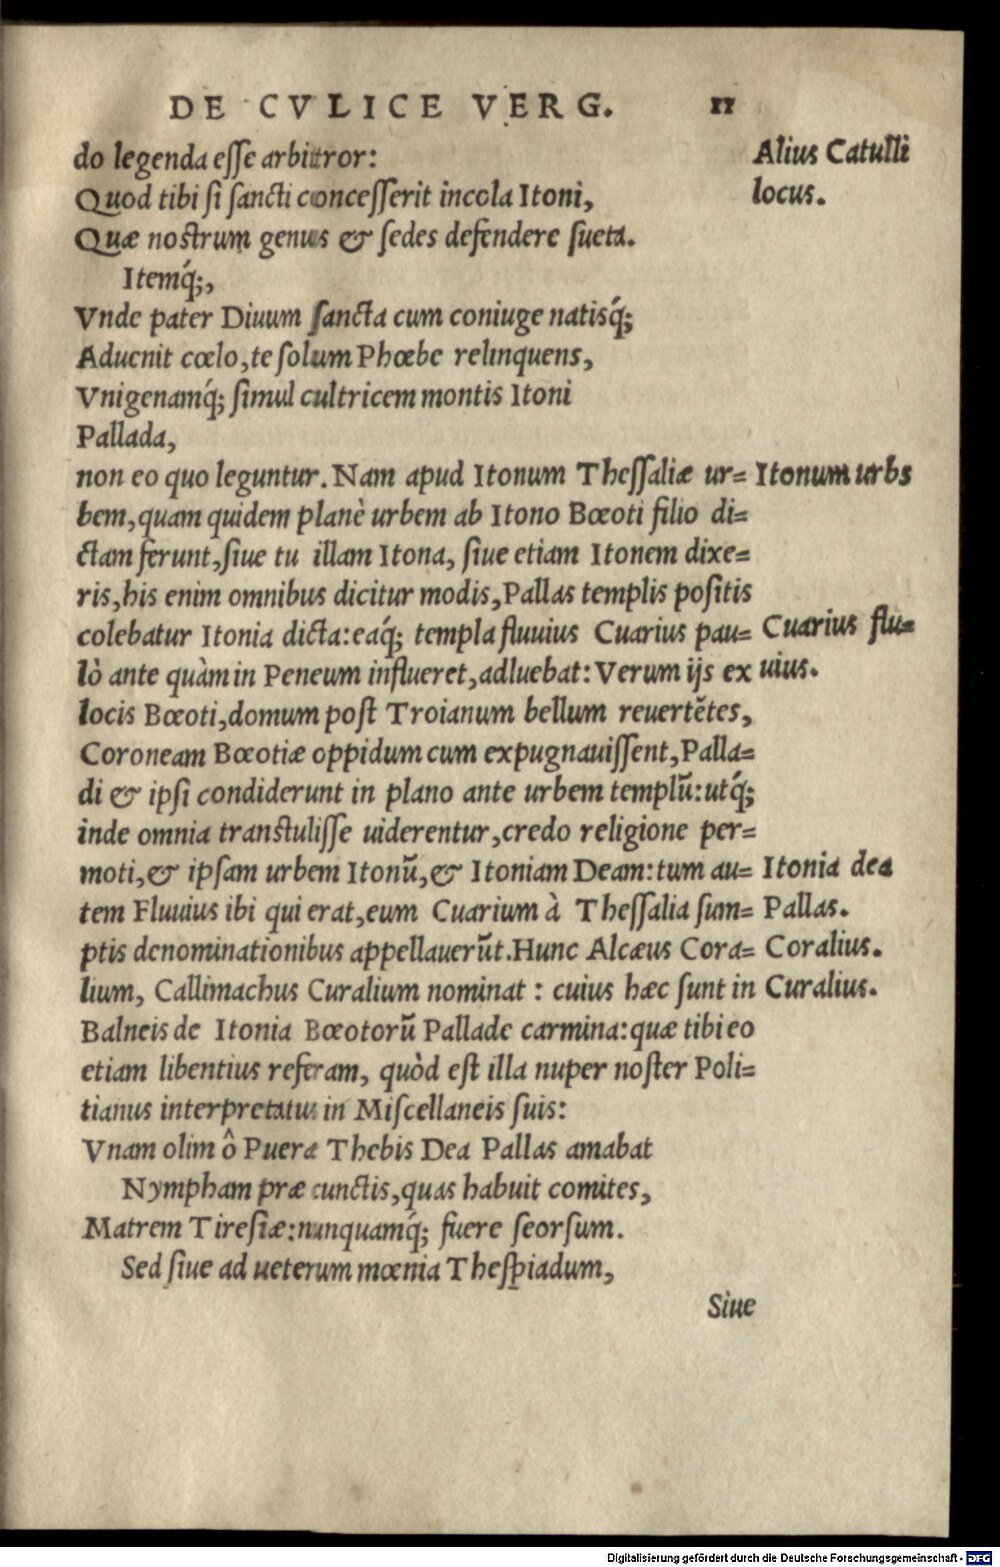 DE CVLICE VERG. 11
do legenda eſſe arbitror:
Alius Catulli
locus.
Quod tibi ſi ſancti conceſſerit incola Itoni,
Quæ noſtrum genus & ſedes defendere ſueta.
Itemq́;,
Vnde pater Diuum ſancta cum coniuge natisq́;
Aduenit cœlo, te ſolum Phœbe relinquens,
Vnigenamq́; ſimul cultricem montis Itoni
Pallada,
non eo quo leguntur. Nam apud Itonum Theſſaliæ ur=
Itonum urbs
bem, quam quidem planè urbem ab Itono Bœoti filio di=
ctam ferunt, ſiue tu illam Itona, ſiue etiam Itonem dixe=
ris, his enim omnibus dicitur modis, Pallas templis poſitis
colebatur Itonia dicta: eaq́; templa fluuius Cuarius pau=
Cuarius flu=
uius.
lò ante quàm in Peneum influeret, adluebat: Verum ijs ex
locis Bœoti, domum poſt Troianum bellum reuertẽtes,
Coroneam Bœotiæ oppidum cum expugnauiſſent, Palla=
di & ipſi condiderunt in plano ante urbem templũ: utq́;
inde omnia tranſtuliſſe uiderentur, credo religione per=
moti, & ipſam urbem Itonũ, & Itoniam Deam: tum au=
Itonia dea
Pallas.
tem Fluuius ibi qui erat, eum Cuarium à Theſſalia ſum=
ptis denominationibus appellauerũt. Hunc Alcæus Cora=
Coralius.
lium, Callimachus Curalium nominat : cuius hæc ſunt in
Curalius.
Balneis de Itonia Bœotorũ Pallade carmina: quæ tibi eo
etiam libentius referam, quòd eſt illa nuper noſter Poli=
tianus interpretatus in Miſcellaneis ſuis:
Vnam olim ô Pueræ Thebis Dea Pallas amabat
Nympham præ cunctis, quas habuit comites,
Matrem Tireſiæ: nunquamq́; fuere ſeorſum.
Sed ſiue ad ueterum mœnia Theſpiadum,
Siue
Digitalisierung gefördert durch die Deutsche Forschungsgemeinschaft - DFG